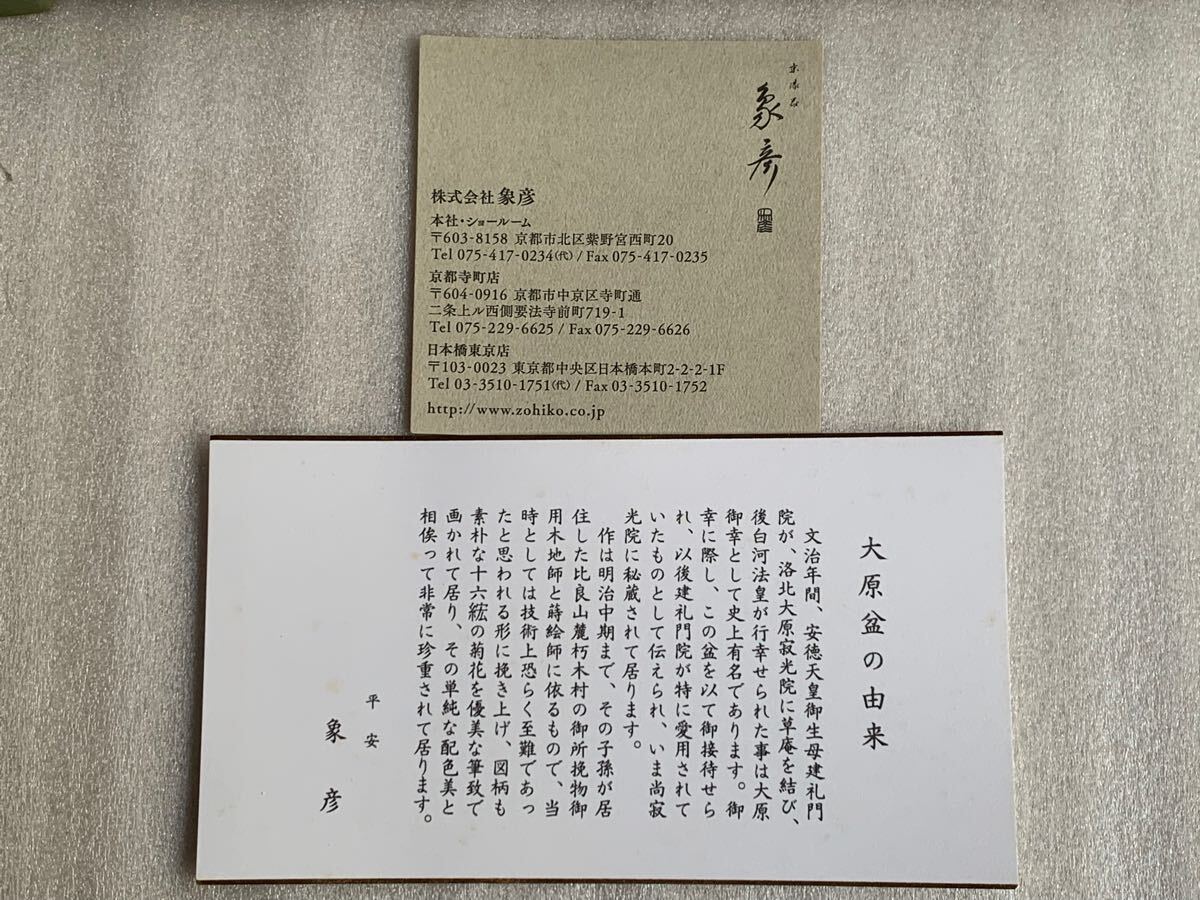 京漆器
象彦
株式会社 象彦
本社・ショールーム
〒603-8158 京都市北区紫野宮西町20
Tel 075-417-0234(代) / Fax 075-417-0235
京都寺町店
〒604-0916 京都市中京区寺町通
二条上ル西側要法寺前町719-1
Tel 075-229-6625 / Fax 075-229-6626
日本橋東京店
〒103-0023 東京都中央区日本橋本町2-2-2-1F
Tel 03-3510-1751(代) / Fax 03-3510-1752
http://www.zohiko.co.jp
大原盆の由来
文治年間、安徳天皇御生母建礼門
院が、洛北大原寂光院に草庵を結び、
後白河法皇が行幸せられた事は大原
御幸として史上有名であります。御
幸に際し、この盆を以て御接待せら
れ、以後建礼門院が特に愛用されて
いたものとして伝えられ、いま尚寂
光院に秘蔵されて居ります。
作は明治中期まで、その子孫が居
住した比良山麓朽木村の御所挽物御
用木地師と蒔絵師に依るもので、当
時としては技術上恐らく至難であっ
たと思われる形に挽き上げ、図柄も
素朴な十六紘の菊花を優美な筆致で
画かれて居り、その単純な配色美と
相俟って非常に珍重されて居ります。
平安
象彦